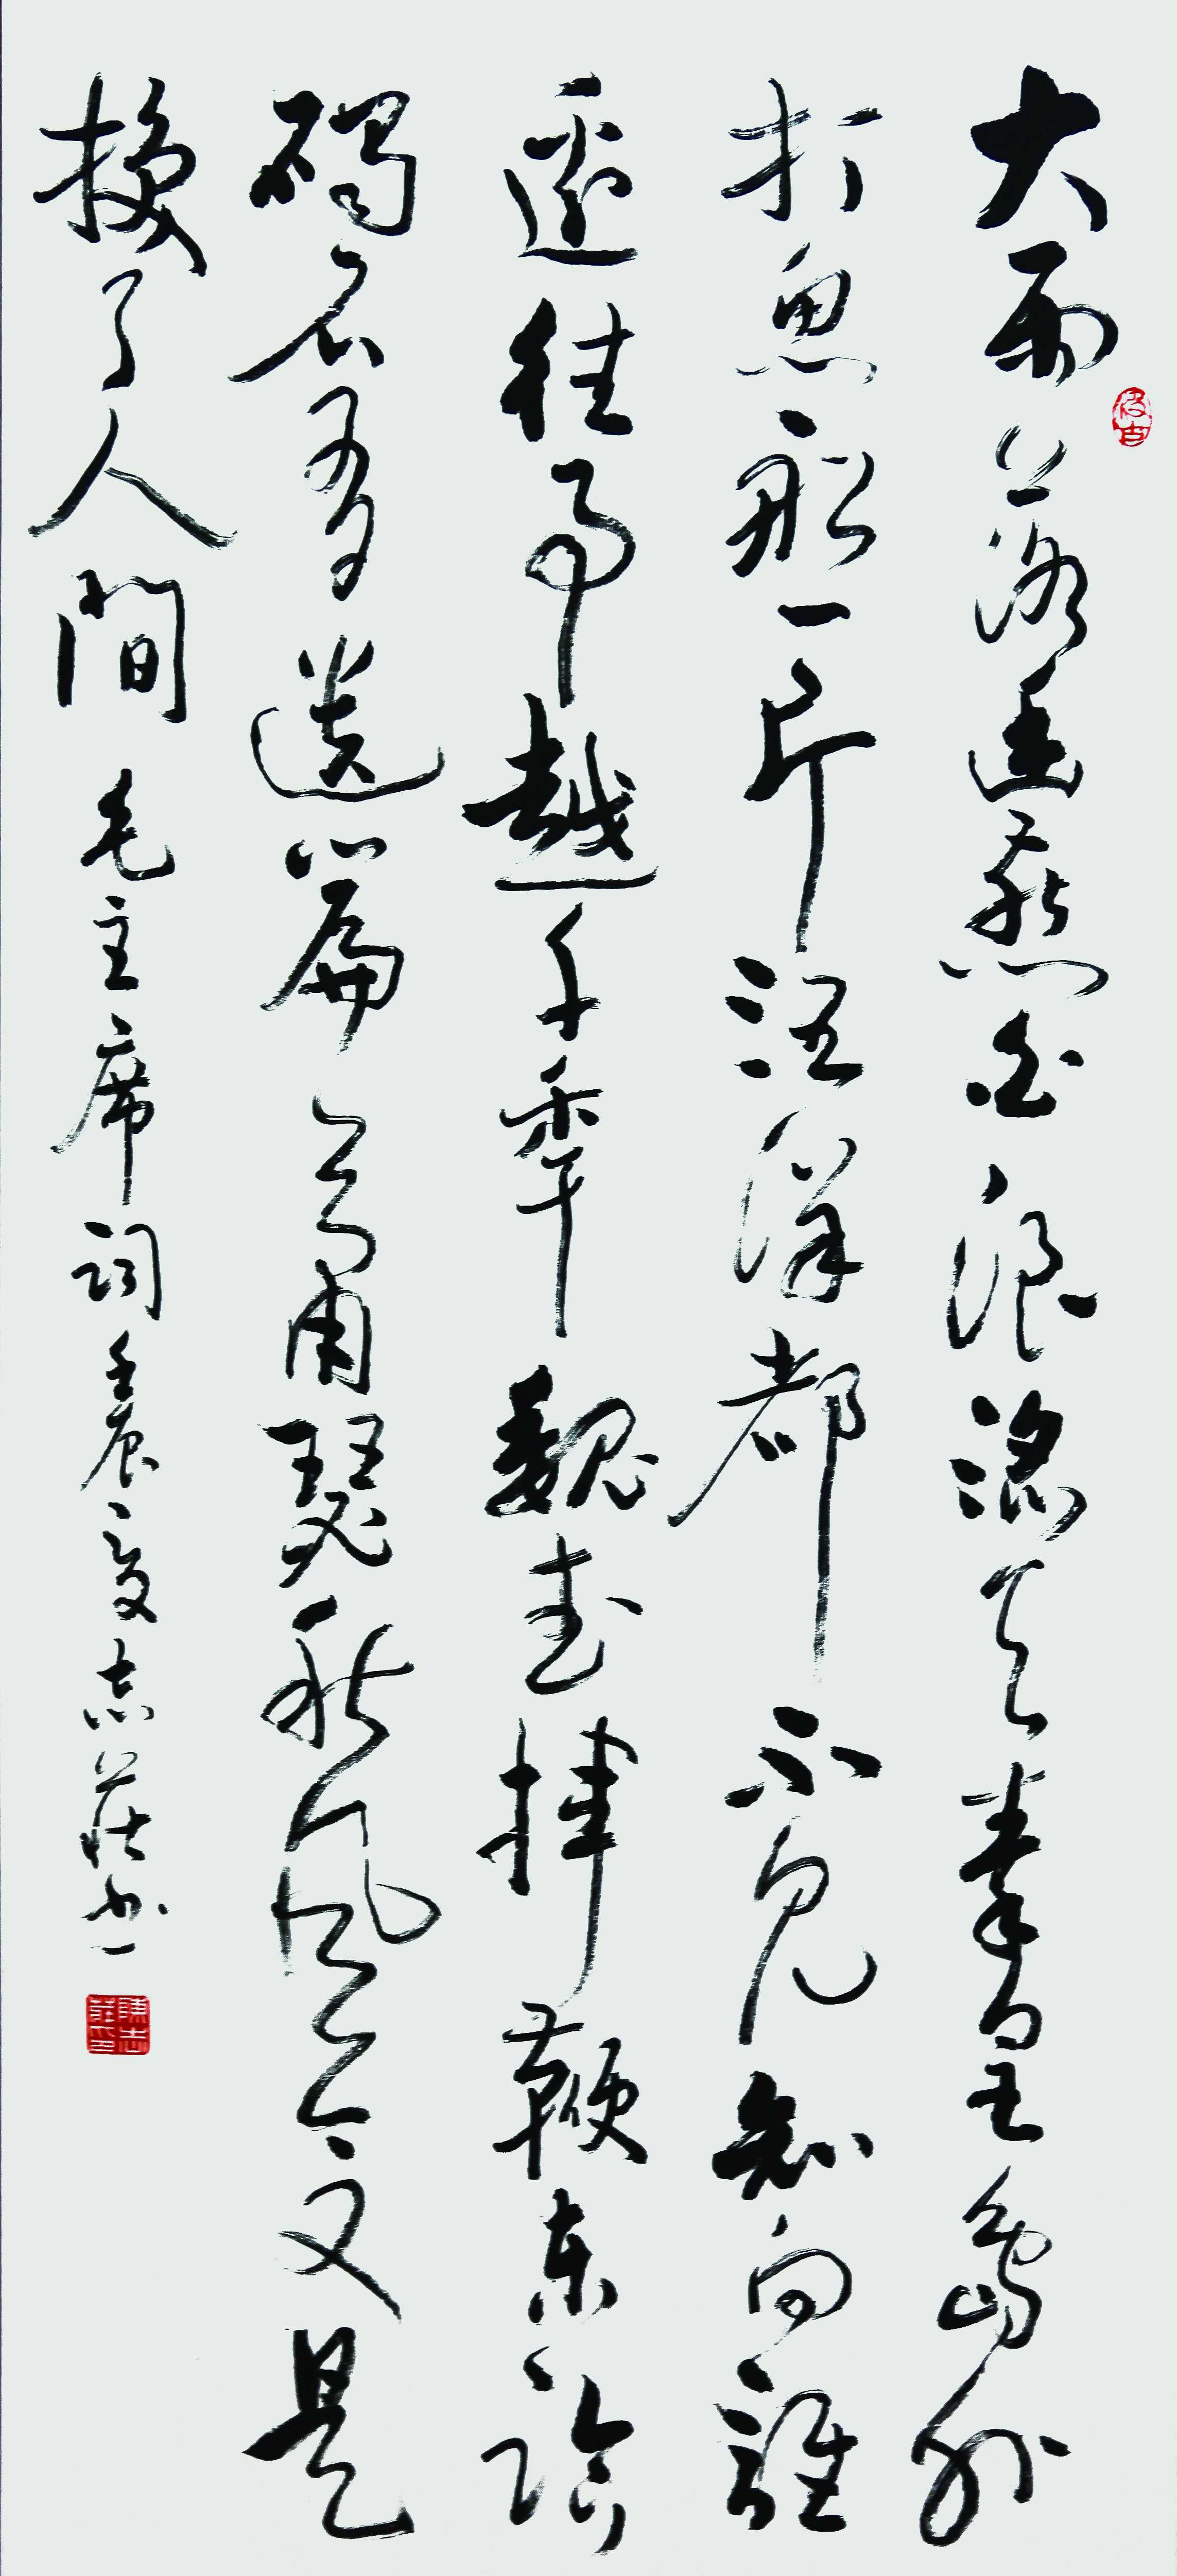 大雨落幽燕白浪滔天秦皇島外
打魚船一片汪洋都不見知向誰
邊往事越千秊魏武揮鞭東臨
碣石有遺篇蕭瑟秋風今又是
換了人間 毛主席詞壬辰夏志莊書
陳志莊印